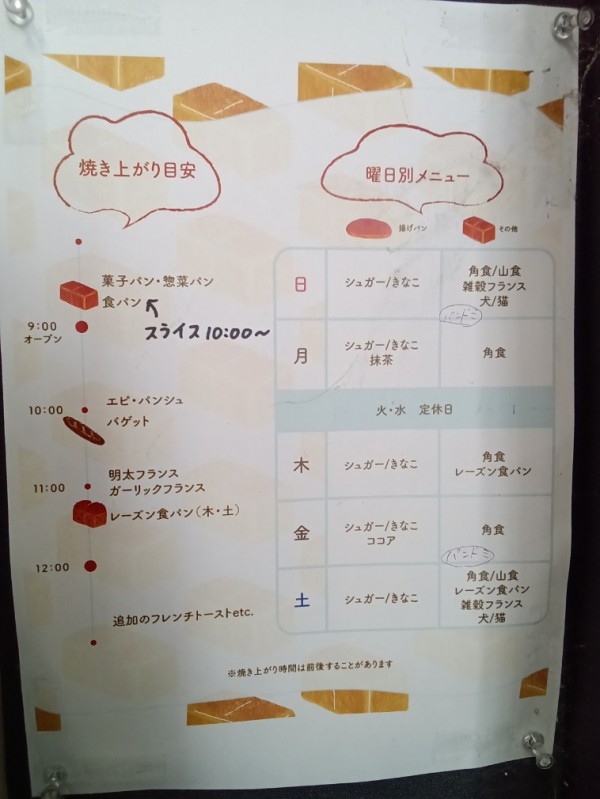 焼き上がり目安
菓子パン・惣菜パン
食パン
スライス 10:00～
9:00
オープン
10:00
エピ・パンシュ
バゲット
11:00
明太フランス
ガーリックフランス
レーズン食パン(木・土)
12:00
追加のフレンチトーストetc.
曜日別メニュー
揚げパン
その他
日
シュガー/きなこ
角食/山食
雑穀フランス
犬/猫
パンドミ
月
シュガー/きなこ
抹茶
角食
火・水 定休日
木
シュガー/きなこ
角食
レーズン食パン
金
シュガー/きなこ
ココア
角食
パンドミ
土
シュガー/きなこ
角食/山食
レーズン食パン
雑穀フランス
犬/猫
※焼き上がり時間は前後することがあります